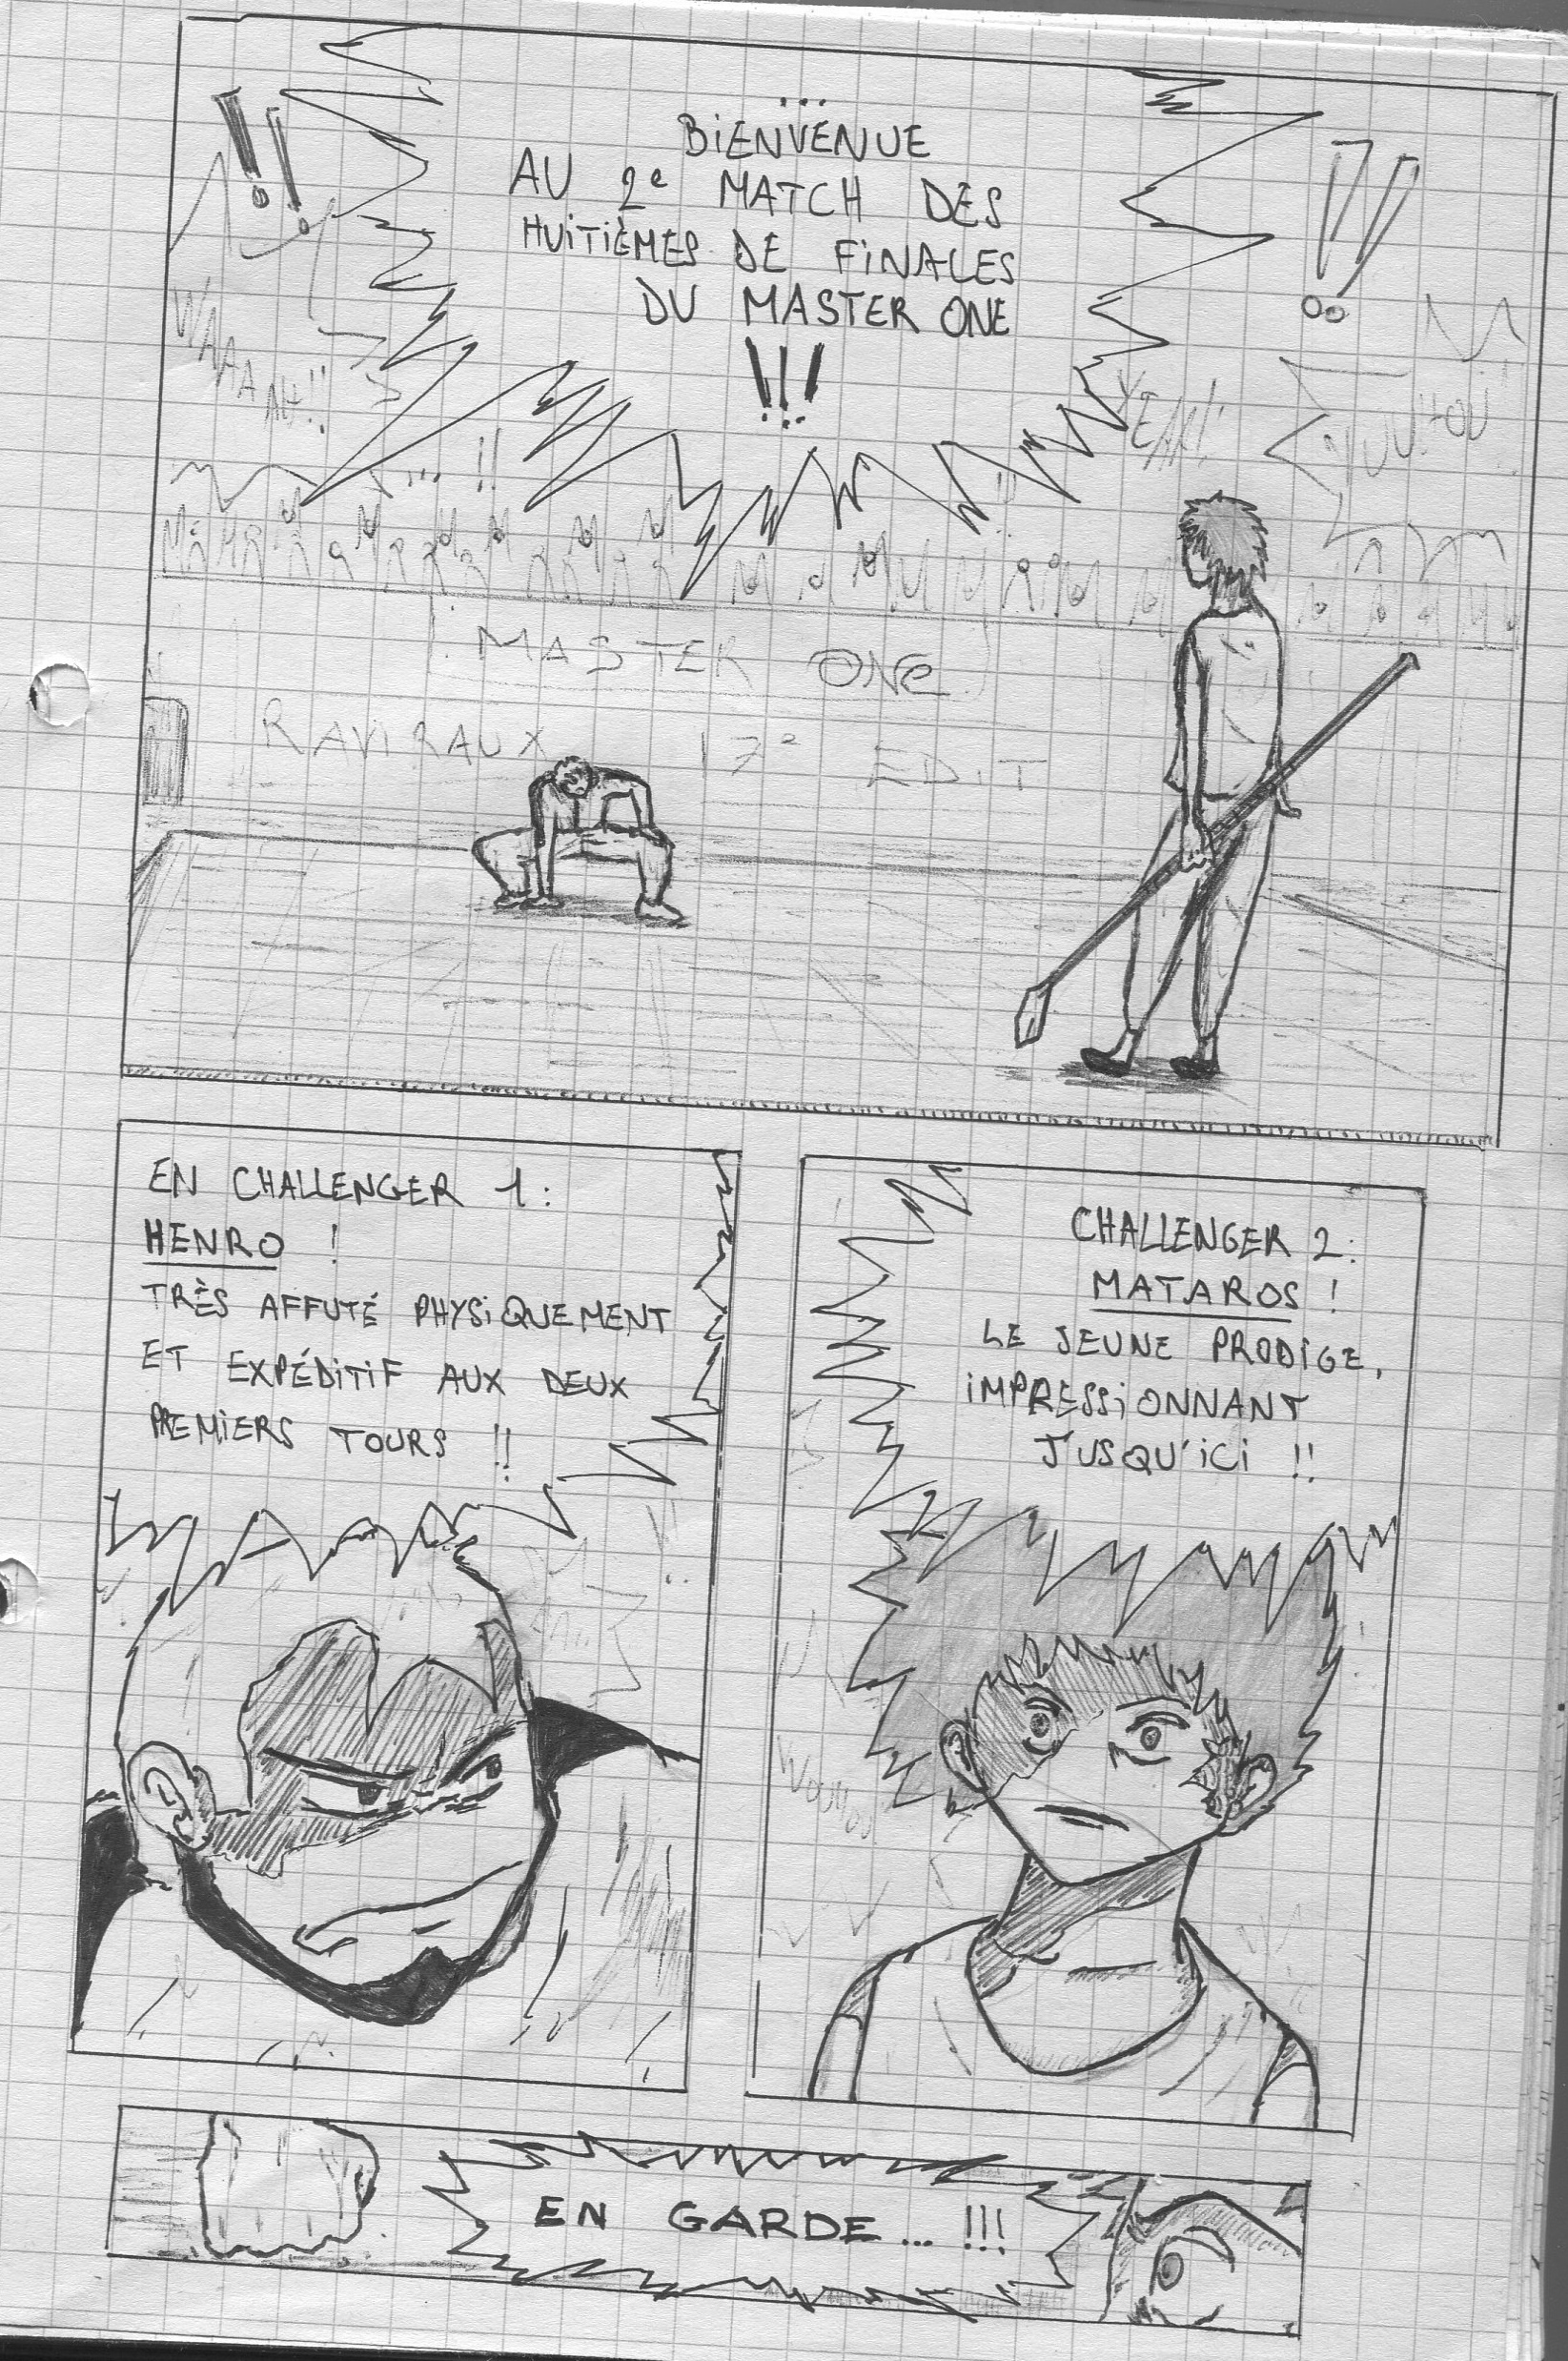 ...
BIENVENUE
AU 2e MATCH DES
HUITIÈMES DE FINALES
DU MASTER ONE
!!!
!!
!!
WAAAAH!!
... !!
YEAH!
YUUHOU
MASTER ONE
17e EDIT
EN CHALLENGER 1:
HENRO !
TRÈS AFFUTÉ PHYSIQUEMENT
ET EXPÉDITIF AUX DEUX
PREMIERS TOURS !!
CHALLENGER 2:
MATAROS !
LE JEUNE PRODIGE,
IMPRESSIONNANT
JUSQU'ICI !!
EN GARDE... !!!